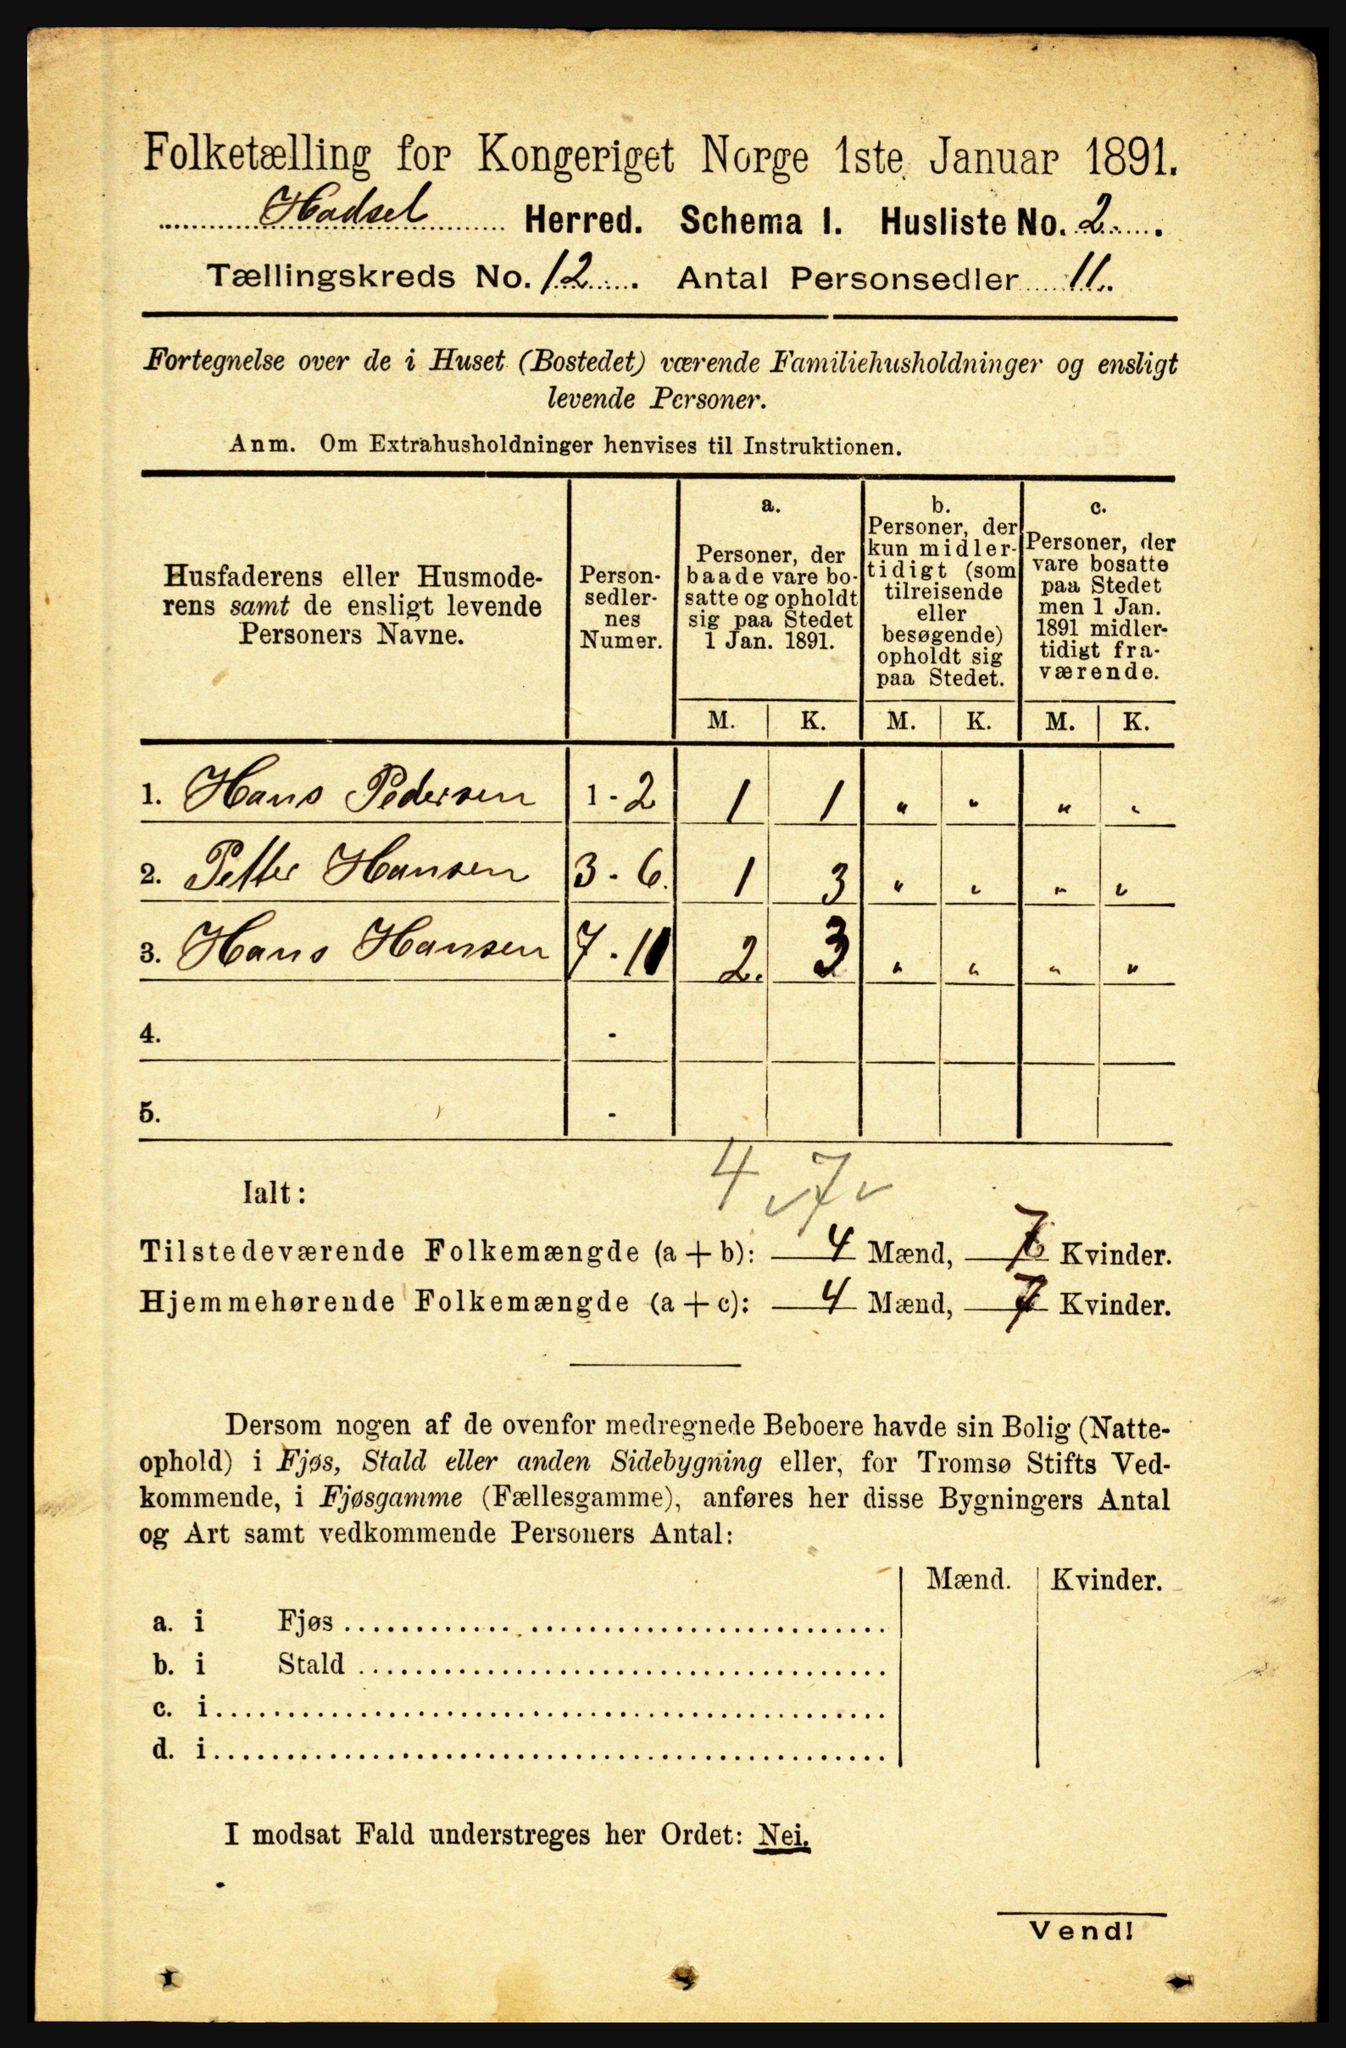 Folketælling for Kongeriget Norge 1ste Januar 1891.
Hadsel Herred. Schema I. Husliste No. 2.
Tællingskreds No. 12. Antal Personsedler 11.
Fortegnelse over de i Huset (Bostedet) værende Familiehusholdninger og ensligt
levende Personer.
Anm. Om Extrahusholdninger henvises til Instruktionen.
Husfaderens eller Husmode-
rens samt de ensligt levende
Personers Navne.
Person-
sedler-
nes
Numer.
a.
Personer, der
baade vare bo-
satte og opholdt
sig paa Stedet
1 Jan. 1891.
b.
Personer, der
kun midler-
tidigt (som
tilreisende
eller
besøgende)
opholdt sig
paa Stedet.
c.
Personer, der
vare bosatte
paa Stedet
men 1 Jan.
1891 midler-
tidigt fra-
værende.
M. K. M. K. M. K.
1. Hans Pedersen 1 - 2 1 1 " " " "
2. Petter Hansen 3 - 6. 1 3 " " " "
3. Hans Hansen 7 - 11 2. 3 " " " "
4. -
5. -
4 7
Ialt:
Tilstedeværende Folkemængde (a + b): 4 Mænd, 7 Kvinder.
Hjemmehørende Folkemængde (a + c): 4 Mænd, 7 Kvinder.
Dersom nogen af de ovenfor medregnede Beboere havde sin Bolig (Natte-
ophold) i Fjøs, Stald eller anden Sidebygning eller, for Tromsø Stifts Ved-
kommende, i Fjøsgamme (Fællesgamme), anføres her disse Bygningers Antal
og Art samt vedkommende Personers Antal:
Mænd. Kvinder.
a. i Fjøs
b. i Stald
c. i
d. i
I modsat Fald understreges her Ordet: Nei.
Vend!